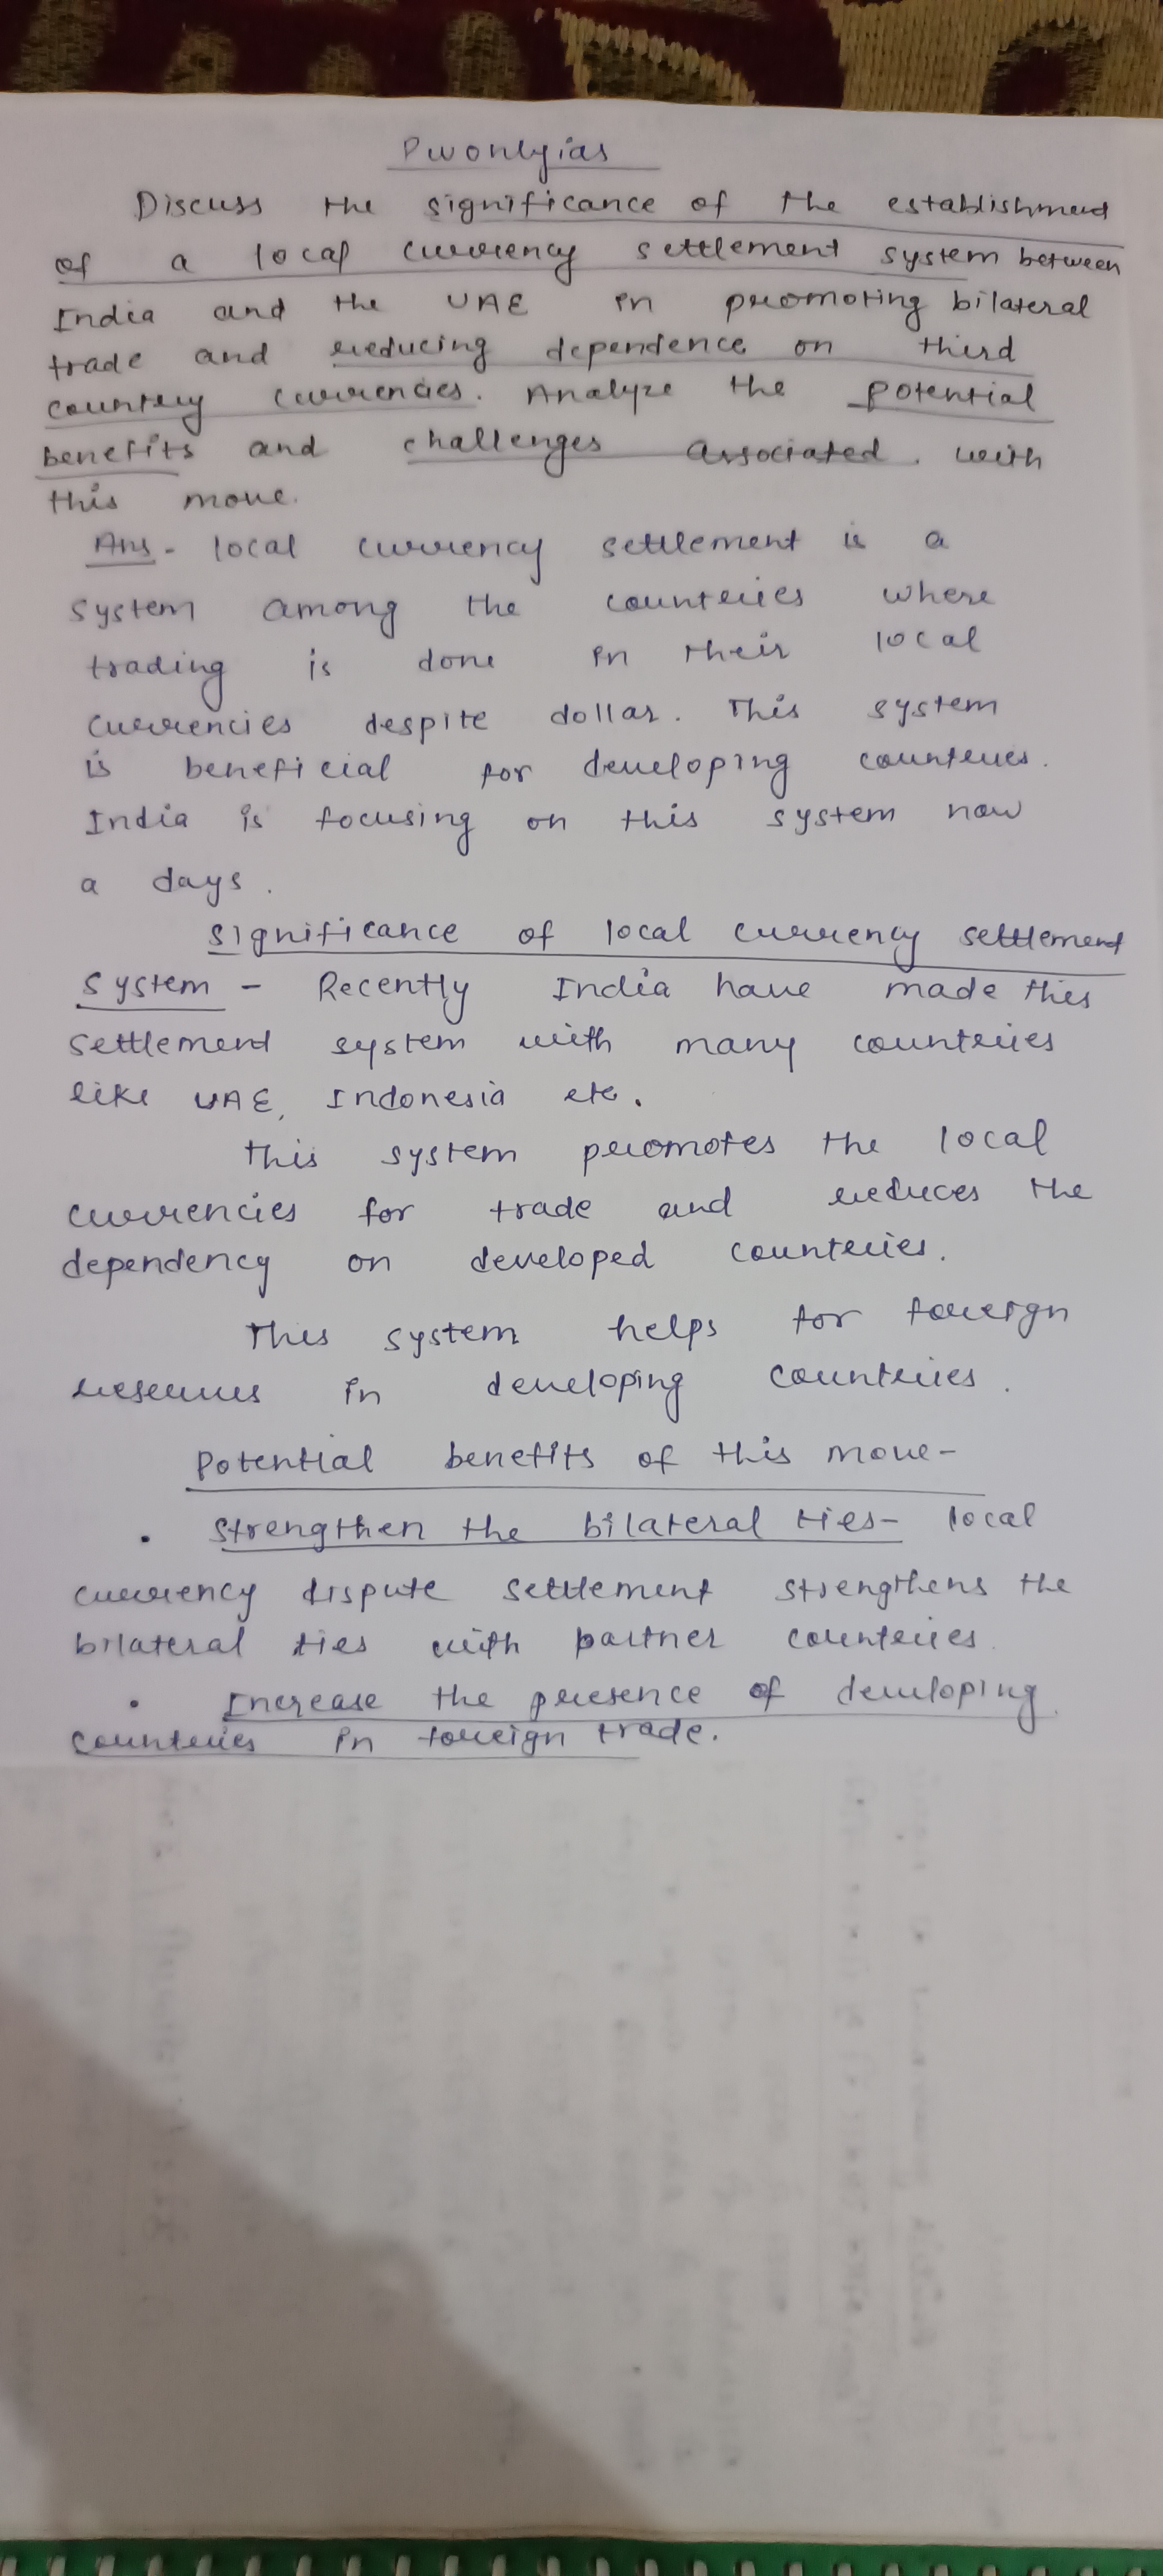 Pwonlyias
Discuss the significance of the establishment
of a local currency settlement system between
India and the UAE in promoting bilateral
trade and reducing dependence on third
country currencies. Analyze the potential
benefits and challenges associated. with
this move.
Ans - local currency settlement is a
system among the countries where
trading is done in their local
currencies despite dollar. This system
is beneficial for developing countries.
India is focusing on this system now
a days.
Significance of local currency settlement
system - Recently India have made this
settlement system with many countries
like UAE, Indonesia etc.
This system promotes the local
currencies for trade and reduces the
dependency on developed countries.
This system helps for foreign
reserves in developing countries.
Potential benefits of this move -
• Strengthen the bilateral ties - local
currency dispute settlement strengthens the
bilateral ties with partner countries.
• Increase the presence of developing
countries in foreign trade.